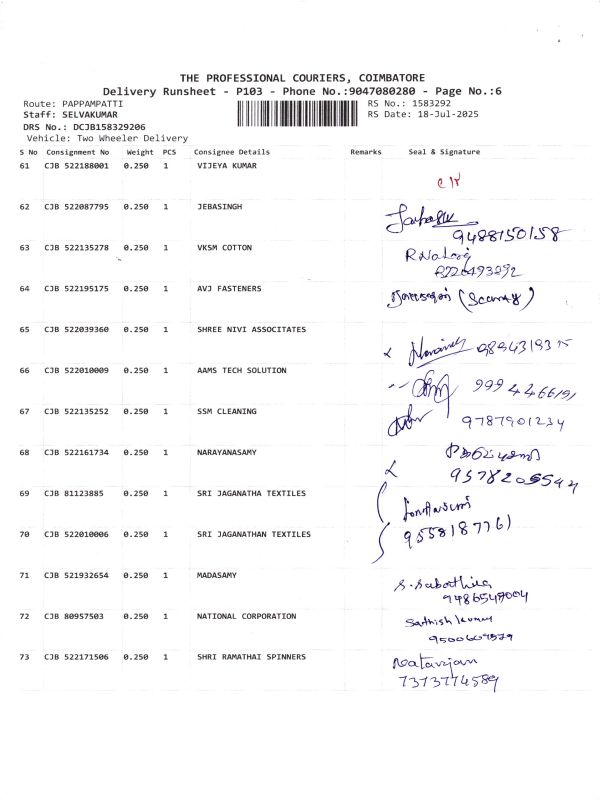 THE PROFESSIONAL COURIERS, COIMBATORE
Delivery Runsheet - P103 - Phone No.:9047080280 - Page No.:6
Route: PAPPAMPATTI RS No.: 1583292
Staff: SELVAKUMAR RS Date: 18-Jul-2025
DRS No.: DCJB158329206
Vehicle: Two Wheeler Delivery
S No Consignment No Weight PCS Consignee Details Remarks Seal & Signature
61 CJB 522188001 0.250 1 VIJEYA KUMAR
62 CJB 522087795 0.250 1 JEBASINGH
9488150158
63 CJB 522135278 0.250 1 VKSM COTTON
64 CJB 522195175 0.250 1 AVJ FASTENERS
65 CJB 522039360 0.250 1 SHREE NIVI ASSOCITATES
66 CJB 522010009 0.250 1 AAMS TECH SOLUTION
67 CJB 522135252 0.250 1 SSM CLEANING
9787901234
68 CJB 522161734 0.250 1 NARAYANASAMY
69 CJB 81123885 0.250 1 SRI JAGANATHA TEXTILES
70 CJB 522010006 0.250 1 SRI JAGANATHAN TEXTILES
9558187761
71 CJB 521932654 0.250 1 MADASAMY
72 CJB 80957503 0.250 1 NATIONAL CORPORATION
Sathish kumar
73 CJB 522171506 0.250 1 SHRI RAMATHAI SPINNERS
Natarajan
7373774589